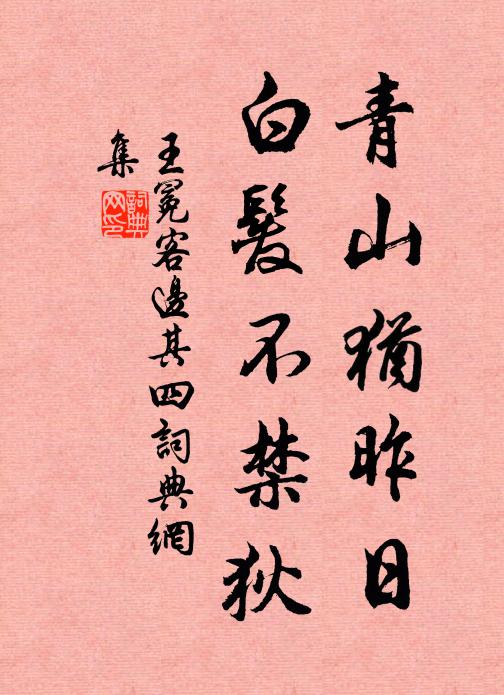 青山猶昨日
白髮不禁狄
王冕客邊其四詞典網
集
詞典
网印